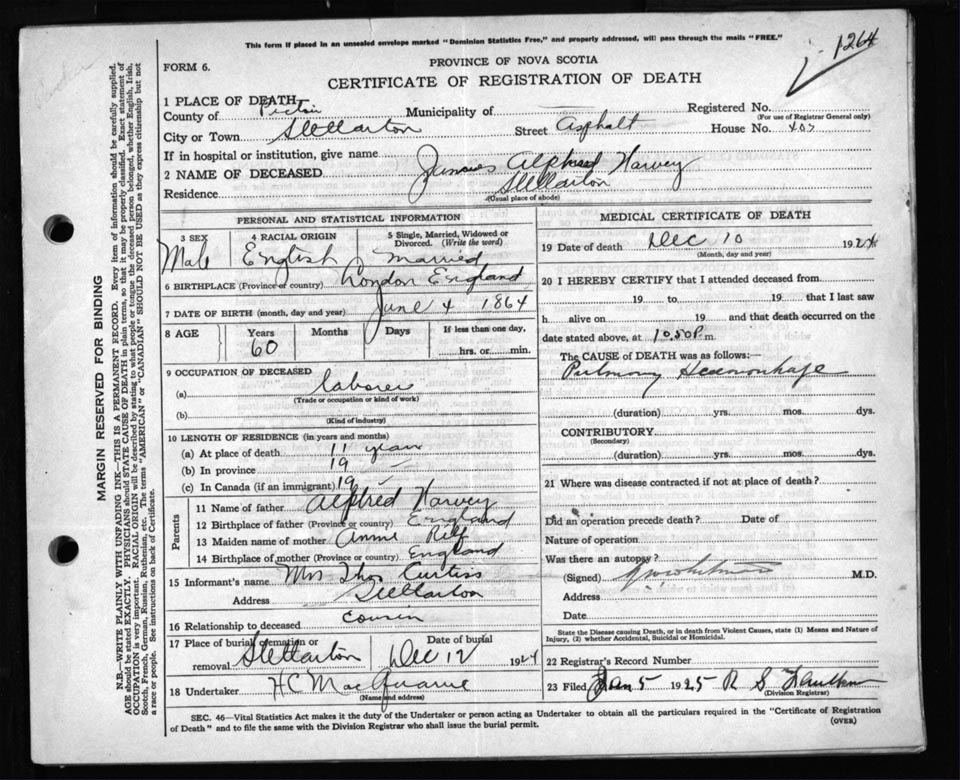 This form if placed in an unsealed envelope marked "Dominion Statistics Free," and properly addressed, will pass through the mails "FREE."
1264
FORM 6.
PROVINCE OF NOVA SCOTIA
CERTIFICATE OF REGISTRATION OF DEATH
1 PLACE OF DEATH
County of Pictou Municipality of Registered No.
(For use of Registrar General only)
City or Town Stellarton Street Asphalt House No. 407
If in hospital or institution, give name
2 NAME OF DECEASED James Alphred Harvey
Residence Stellarton
(Usual place of abode)
PERSONAL AND STATISTICAL INFORMATION
3 SEX 4 RACIAL ORIGIN 5 Single, Married, Widowed or Divorced. (Write the word)
Male English Married
6 BIRTHPLACE (Province or country) London England
7 DATE OF BIRTH (month, day and year) June 4 1864
8 AGE Years Months Days If less than one day,
60 hrs. or min.
9 OCCUPATION OF DECEASED
(a) laborer
(Trade or occupation or kind of work)
(b)
(Kind of industry)
10 LENGTH OF RESIDENCE (in years and months)
(a) At place of death 11 years
(b) In province 19
(c) In Canada (if an immigrant) 19
Parents
11 Name of father Alphred Harvey
12 Birthplace of father (Province or country) England
13 Maiden name of mother Annie
14 Birthplace of mother (Province or country) England
15 Informant's name Mrs Thos Curtiss
Address Stellarton
16 Relationship to deceased Cousin
17 Place of burial, cremation or removal Stellarton Date of burial Dec 12 1924
18 Undertaker H C MacQuarrie
(Name and address)
MEDICAL CERTIFICATE OF DEATH
19 Date of death Dec 10 1924
(Month, day and year)
20 I HEREBY CERTIFY that I attended deceased from
19 to 19 that I last saw
h alive on 19 and that death occurred on the
date stated above, at 10.50 P m.
The CAUSE OF DEATH was as follows:
Pulmonary Heamorrhage
(duration) yrs. mos. dys.
CONTRIBUTORY
(Secondary)
(duration) yrs. mos. dys.
21 Where was disease contracted if not at place of death?
Did an operation precede death? Date of
Nature of operation
Was there an autopsy?
(Signed) M.D.
Address
Date
State the Disease causing Death, or in death from Violent Causes, state (1) Means and Nature of Injury, (2) whether Accidental, Suicidal or Homicidal.
22 Registrar's Record Number
23 Filed Jan 5 1925 R S
(Division Registrar)
SEC. 46—Vital Statistics Act makes it the duty of the Undertaker or person acting as Undertaker to obtain all the particulars required in the "Certificate of Registration
of Death" and to file the same with the Division Registrar who shall issue the burial permit.
(OVER)
MARGIN RESERVED FOR BINDING
N.B.—WRITE PLAINLY WITH UNFADING INK—THIS IS A PERMANENT RECORD. Every item of information should be carefully supplied.
AGE should be stated EXACTLY. PHYSICIANS should STATE CAUSE OF DEATH in plain terms, so that it may be properly classified. Exact statement of
OCCUPATION is very important. RACIAL ORIGIN will be described by stating to what people or tongue the deceased person belonged, whether English, Irish,
Scotch, French, German, Russian, Ruthenian, etc. The terms "AMERICAN" or "CANADIAN" SHOULD NOT BE USED as they express citizenship but not
a race or people. See instructions on back of Certificate.